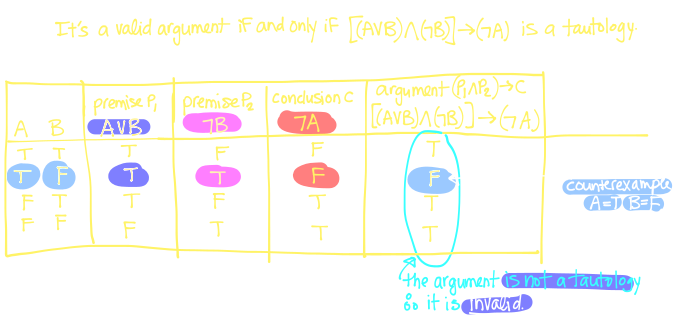 It's a valid argument iF and only iF [(A∨B)∧(¬B)]→(¬A) is a tautology.
premise P₁ premise P₂ conclusion C argument (P₁∧P₂)→C
A B A∨B ¬B ¬A [(A∨B)∧(¬B)]→(¬A)
T T T F F T
T F T T F F
F T T F T T
F F F T T T
counterexample
A=T B=F
the argument is not a tautology
so it is invalid.